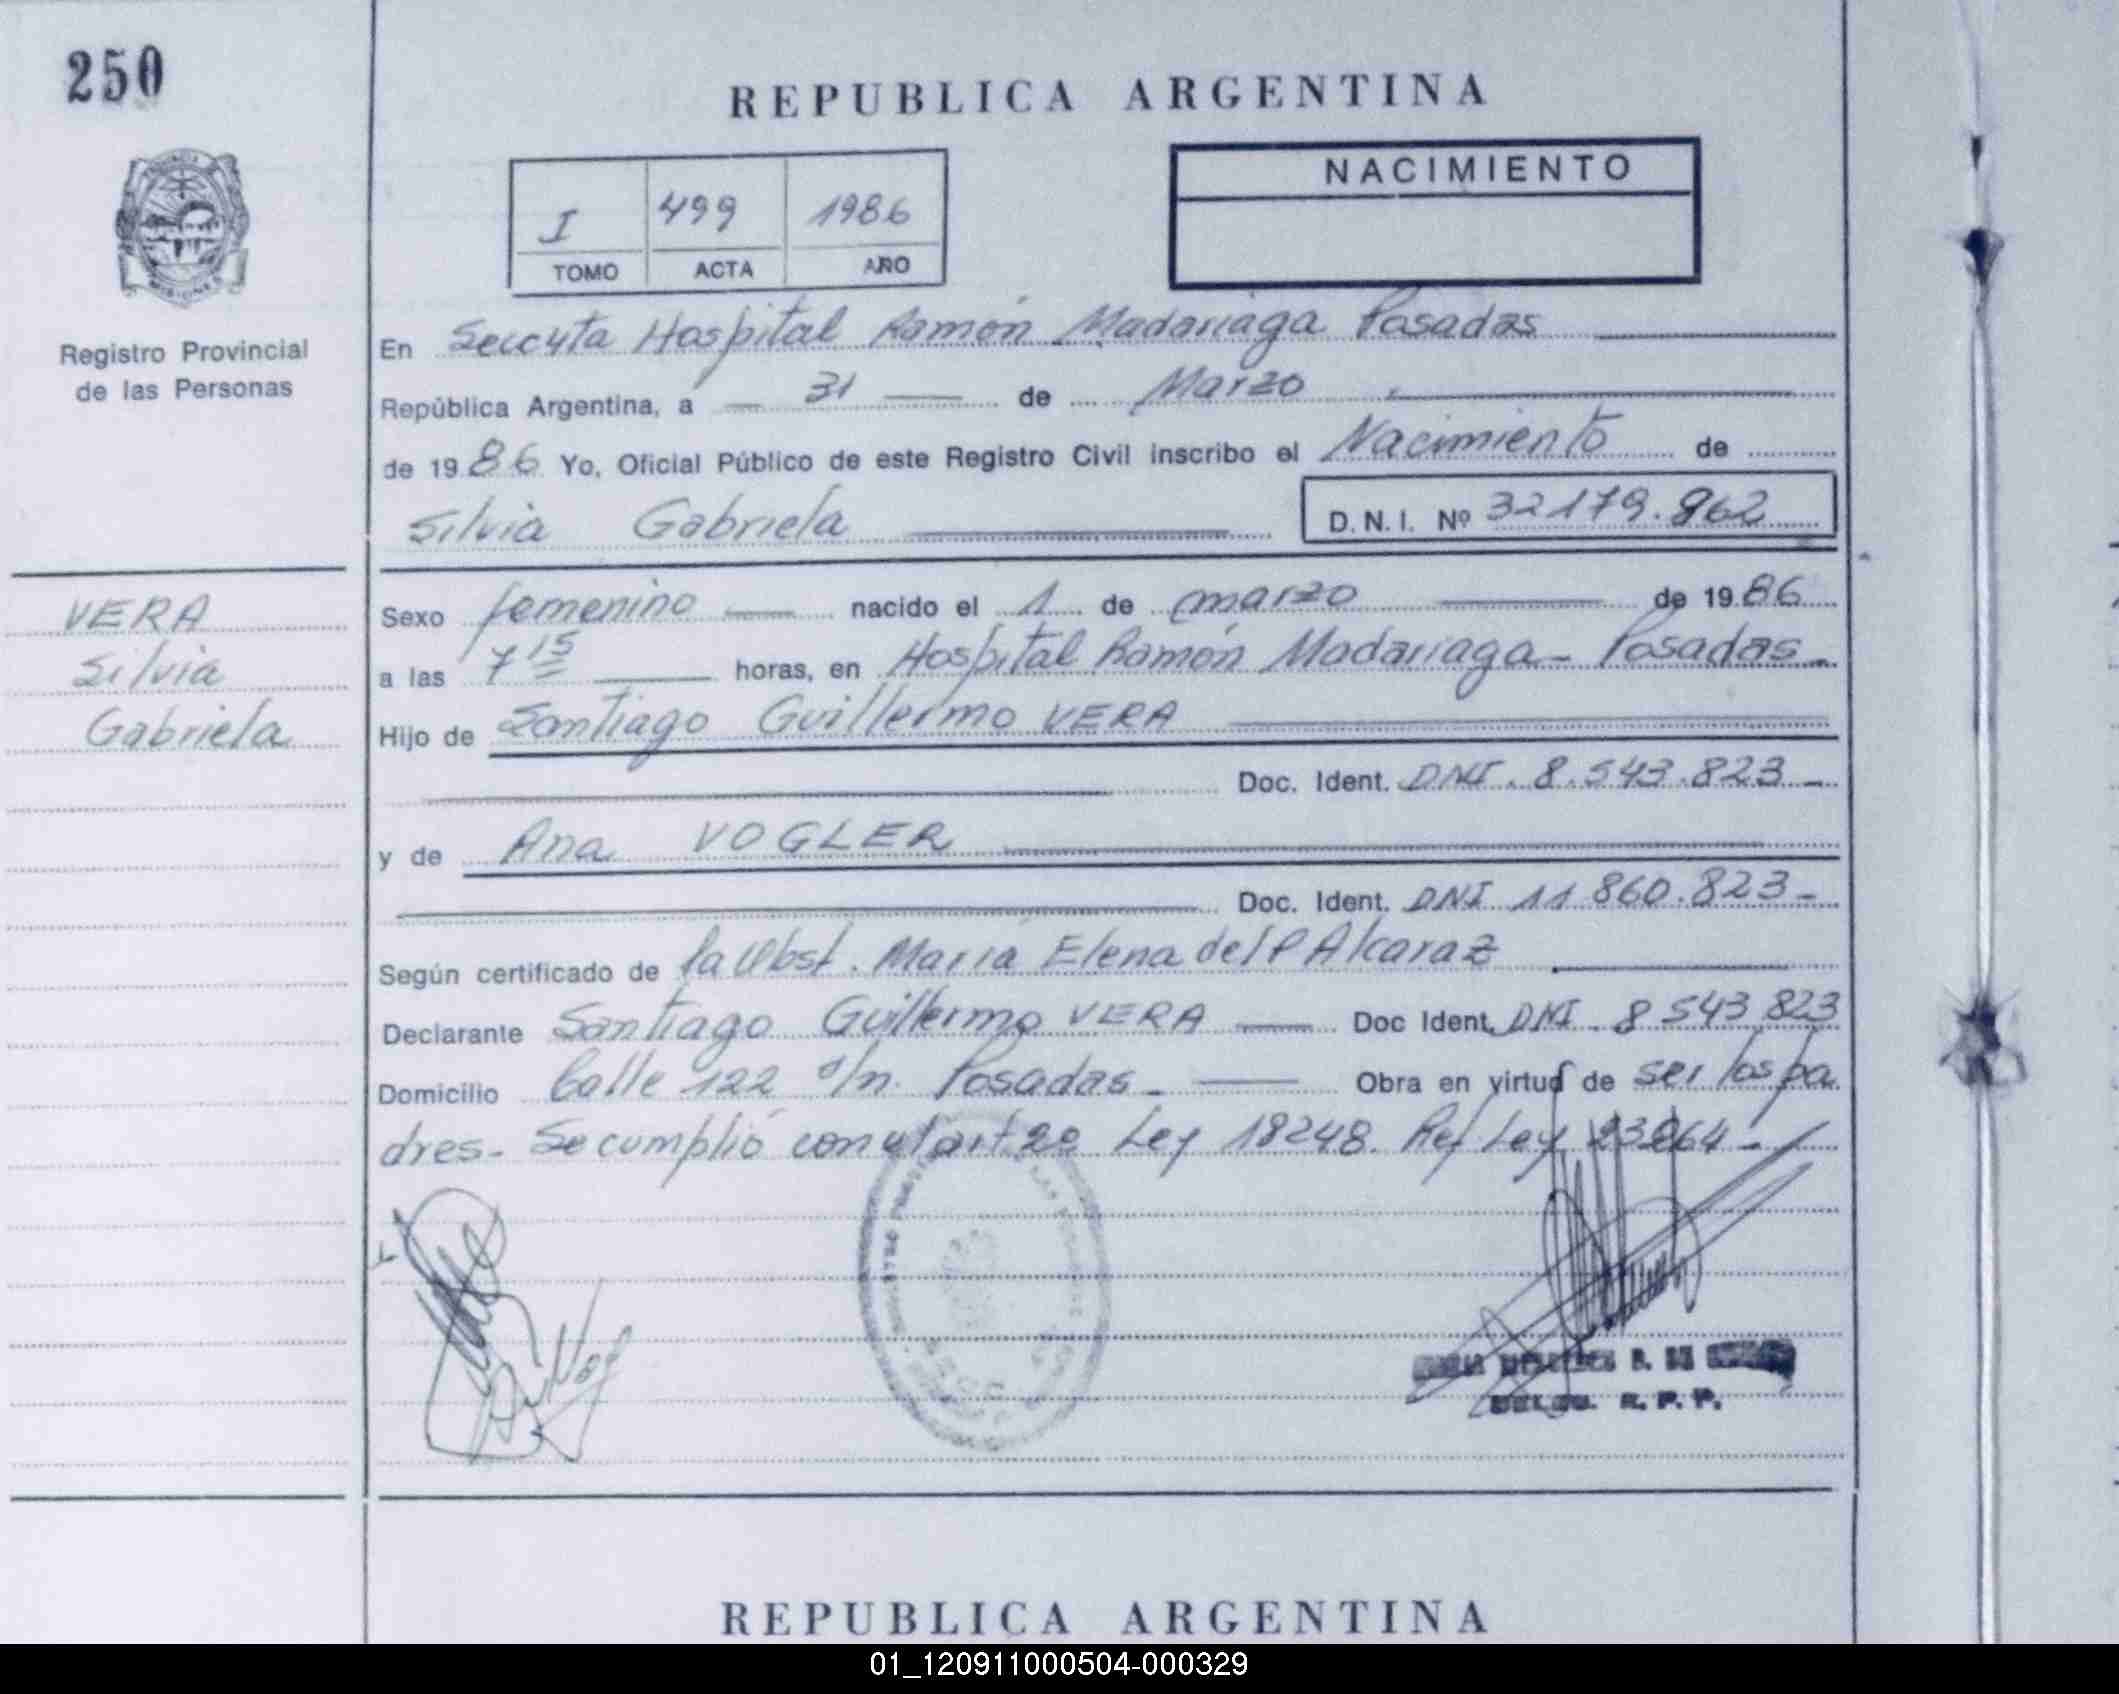 250
REPUBLICA ARGENTINA
NACIMIENTO
I 499 1986
TOMO ACTA AÑO
Registro Provincial
de las Personas
En Seccyta Hospital Ramón Madariaga Posadas
República Argentina, a 31 de Marzo
de 1986 Yo, Oficial Público de este Registro Civil inscribo el Nacimiento de
Silvia Gabriela D.N.I. Nº 32179.962
VERA
Silvia
Gabriela
Sexo femenino nacido el 1 de marzo de 1986
a las 7 15 horas, en Hospital Ramón Madariaga - Posadas -
Hijo de Santiago Guillermo VERA
Doc. Ident. DNI. 8.543.823 -
y de Ana VOGLER
Doc. Ident. DNI 11 860.823 -
Según certificado de la Obst. María Elena del P Alcaraz
Declarante Santiago Guillermo VERA Doc Ident. DNI. 8 543 823
Domicilio Calle 122 s/n. Posadas - Obra en virtud de ser los pa
dres - Se cumplió con el art 2º Ley 18248. Ref Ley 23264 -
R. P. P.
REPUBLICA ARGENTINA
01_120911000504-000329